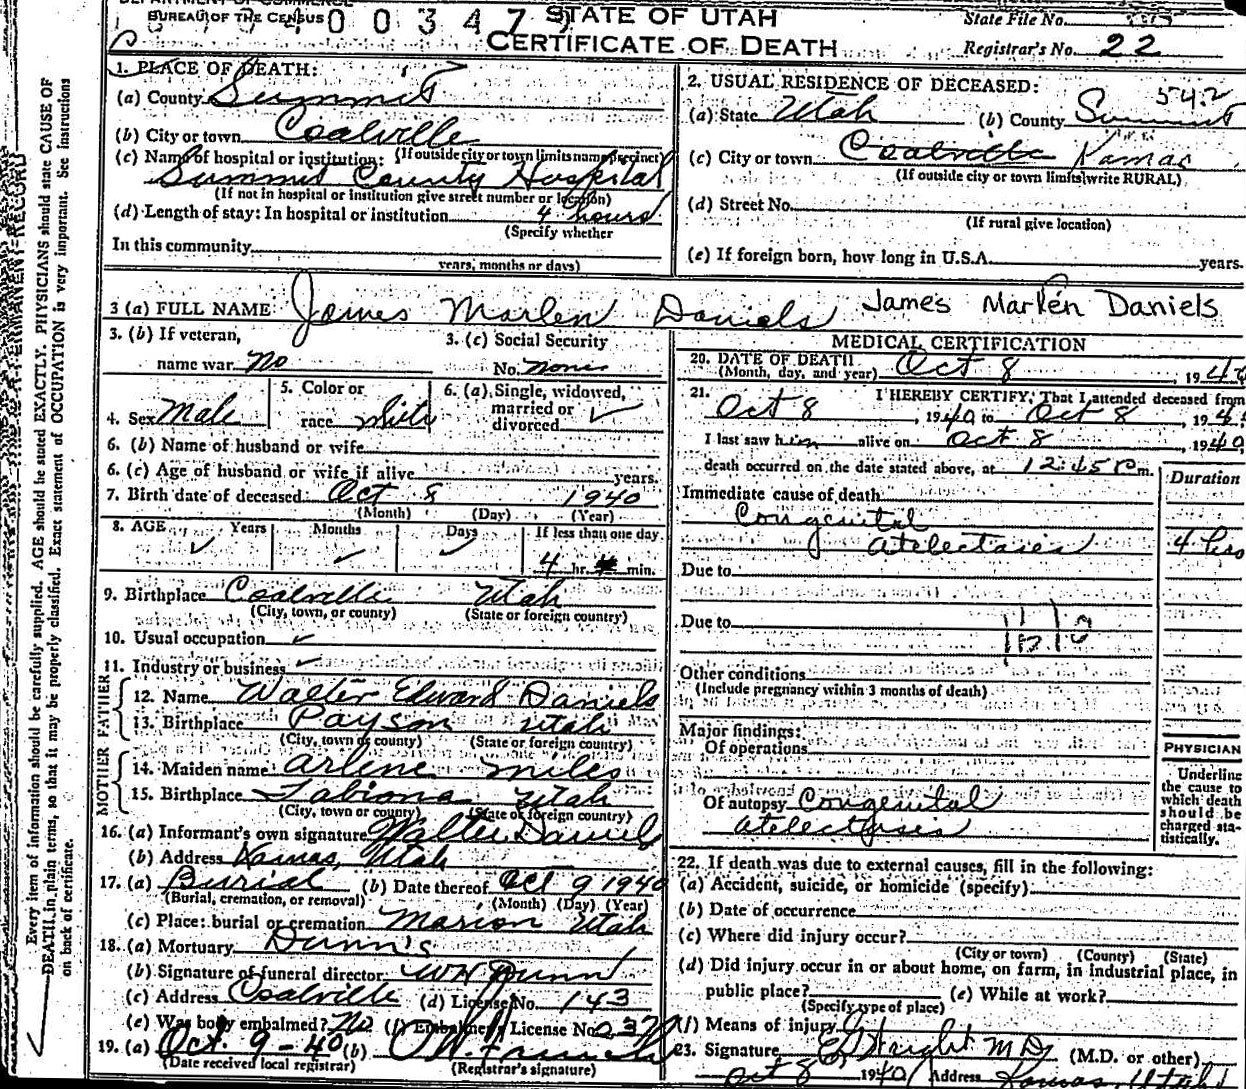 BUREAU OF THE CENSUS
0 0 3 4 7
STATE OF UTAH
CERTIFICATE OF DEATH
State File No.
Registrar's No. 22
Every item of information should be carefully supplied. AGE should be stated EXACTLY. PHYSICIANS should state CAUSE OF
DEATH in plain terms, so that it may be properly classified. Exact statement of OCCUPATION is very important. See instructions
on back of certificate.
1. PLACE OF DEATH:
(a) County Summit
(b) City or town Coalville
(If outside city or town limits name precinct)
(c) Name of hospital or institution:
Summit County Hospital
(If not in hospital or institution give street number or location)
(d) Length of stay: In hospital or institution 4 hours
(Specify whether
In this community
years, months or days)
2. USUAL RESIDENCE OF DECEASED:
542
(a) State Utah (b) County Summit
(c) City or town Coalville Kamas
(If outside city or town limits write RURAL)
(d) Street No.
(If rural give location)
(e) If foreign born, how long in U.S.A. years.
3 (a) FULL NAME James Marlen Daniels James Marlén Daniels
3. (b) If veteran,
name war No
3. (c) Social Security
No. None
4. Sex Male
5. Color or
race White
6. (a) Single, widowed,
married or
divorced ✓
6. (b) Name of husband or wife
6. (c) Age of husband or wife if alive years.
7. Birth date of deceased Oct 8 1940
(Month) (Day) (Year)
8. AGE Years Months Days If less than one day
✓ ✓ ✓ 4 hr. min.
9. Birthplace Coalville Utah
(City, town, or county) (State or foreign country)
10. Usual occupation ✓
11. Industry or business ✓
FATHER
12. Name Walter Edward Daniels
13. Birthplace Payson Utah
(City, town or county) (State or foreign country)
MOTHER
14. Maiden name Arlene Miles
15. Birthplace Tabiona Utah
(City, town or county) (State or foreign country)
16. (a) Informant's own signature Walter Daniels
(b) Address Kamas, Utah
17. (a) Burial (b) Date thereof Oct 9 1940
(Burial, cremation, or removal) (Month) (Day) (Year)
(c) Place: burial or cremation Marion Utah
18. (a) Mortuary Dunn's
(b) Signature of funeral director W H Dunn
(c) Address Coalville (d) License No. 143
(e) Was body embalmed? No (f) Embalmer's License No.
19. (a) Oct. 9-40 (b)
(Date received local registrar) (Registrar's signature)
MEDICAL CERTIFICATION
20. DATE OF DEATH Oct 8, 1940
(Month, day, and year)
21. I HEREBY CERTIFY, That I attended deceased from
Oct 8, 1940 to Oct 8, 194
I last saw him alive on Oct 8 1940
death occurred on the date stated above, at 12:45 P m.
Duration
Immediate cause of death
Congenital
atelectasis 4 hrs
Due to
Due to
Other conditions
(Include pregnancy within 3 months of death)
Major findings:
Of operations
Of autopsy Congenital
atelectasis
PHYSICIAN
Underline
the cause to
which death
should be
charged sta-
tistically.
22. If death was due to external causes, fill in the following:
(a) Accident, suicide, or homicide (specify)
(b) Date of occurrence
(c) Where did injury occur?
(City or town) (County) (State)
(d) Did injury occur in or about home, on farm, in industrial place, in
public place? (e) While at work?
(Specify type of place)
(f) Means of injury
23. Signature M.D. (M.D. or other)
Oct 8 1940 Address Kamas, Utah